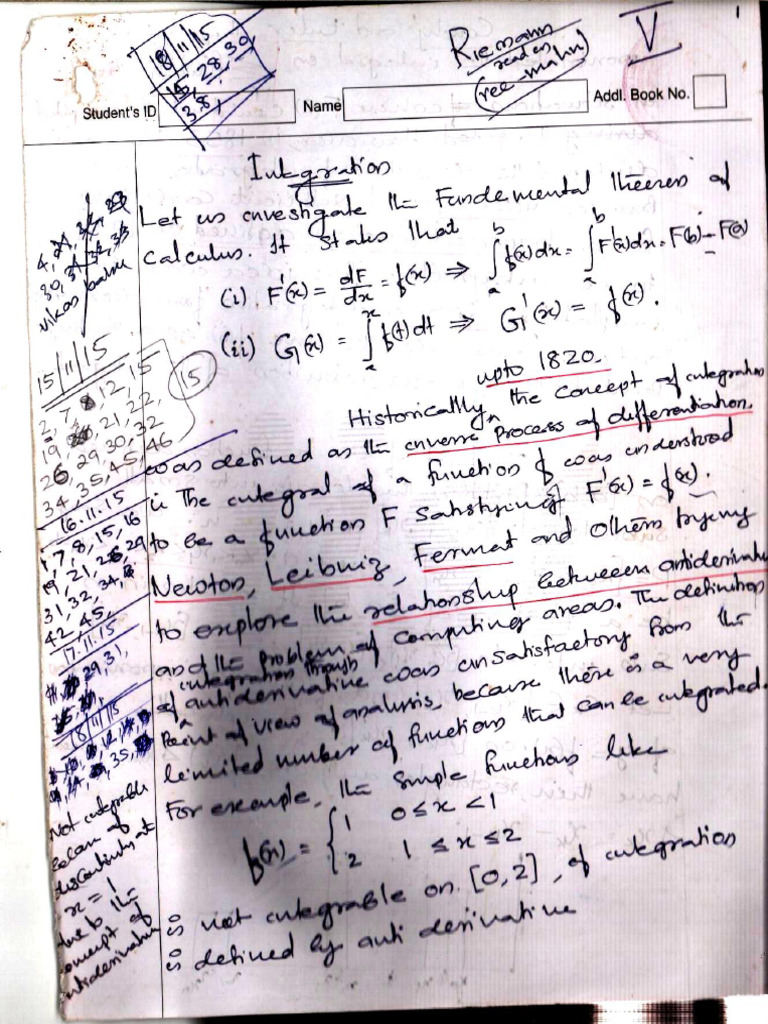 18/11/15
28, 30
38,
Riemann
reader
(ree mahn)
V
1
Student's ID
Name
Addl. Book No.
Integration
Let us investigate the Fundamental theorem of
Calculus. It states that
(i) F'(x) = dF/dx = f(x) ⇒ ∫ₐᵇ f(x)dx = ∫ₐᵇ F'(x)dx = F(b) – F(a)
(ii) G(x) = ∫ₐˣ f(t)dt ⇒ G'(x) = f(x).
upto 1820.
Historically ^ the concept of integration
was defined as the inverse process of differentiation.
ie The integral of a function f was understood
to be a function F satisfying F'(x) = f(x).
Newton, Leibniz, Fermat and others trying
to explore the relationship between antiderivative
and the problem of computing areas. The definition
integration through
of ^ antiderivative was unsatisfactory from the
Point of view of analysis, because there is a very
limited number of functions that can be integrated.
For example, the simple functions like
f(x) = { 1 0 ≤ x < 1
2 1 ≤ x ≤ 2
is not integrable on [0,2], if integration
is defined by anti derivative
vikas babu
15/11/15
15
2, 7, 8, 12, 15
19, 21, 22,
26, 29, 30, 32
34, 35, 45, 46
16.11.15
1, 7, 8, 15, 16
19, 21, 28, 29
31, 32, 34,
42, 45,
17.11.15
29, 31,
18/11/15
35,
Not integrable
becan of
discontinuity at
x = 1
due to the
concept of
antiderivative